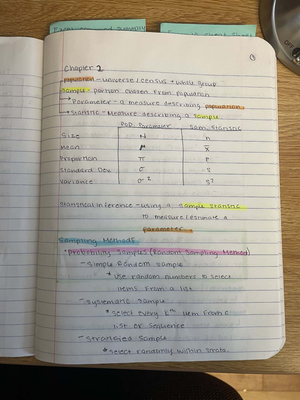 Chapter 2
population - universe/census + whole group
Sample - portion chosen from population
→ Parameter - a measure describing population
→ Statistic - Measure describing a sample
Pop. Parameter Sam. Statistic
Size N n
Mean μ x̄
Proportion π p
Standard Dev. σ s
Variance σ² s²
Statistical inference - using a sample statistic
to measure/estimate a
parameter
Sampling Methods
• Probability Samples (Random Sampling Method)
- Simple Random Sample
* Use random numbers to select
items from a list
- Systematic Sample
* Select every Kth item from a
list or sequence
- Stratified Sample
* Select randomly within strata